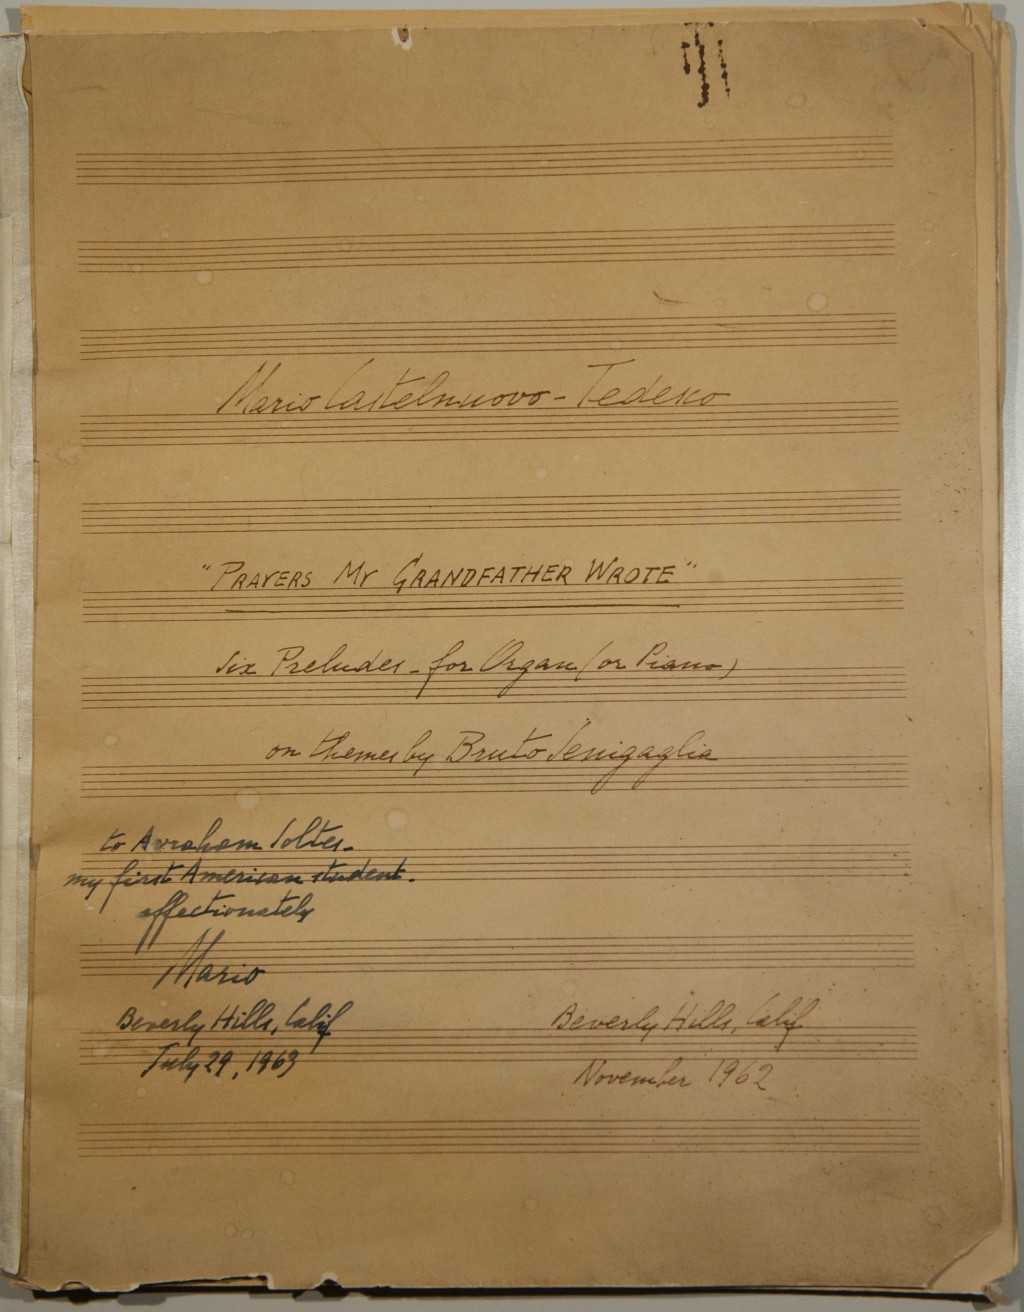 Mario Castelnuovo-Tedesco
"PRAYERS MY GRANDFATHER WROTE"
Six Preludes - for Organ (or Piano)
on themes by Bruto Senigaglia
to Avraham Soltes -
my first American student -
affectionately
Mario
Beverly Hills, Calif
July 29, 1963
Beverly Hills, Calif.
November 1962